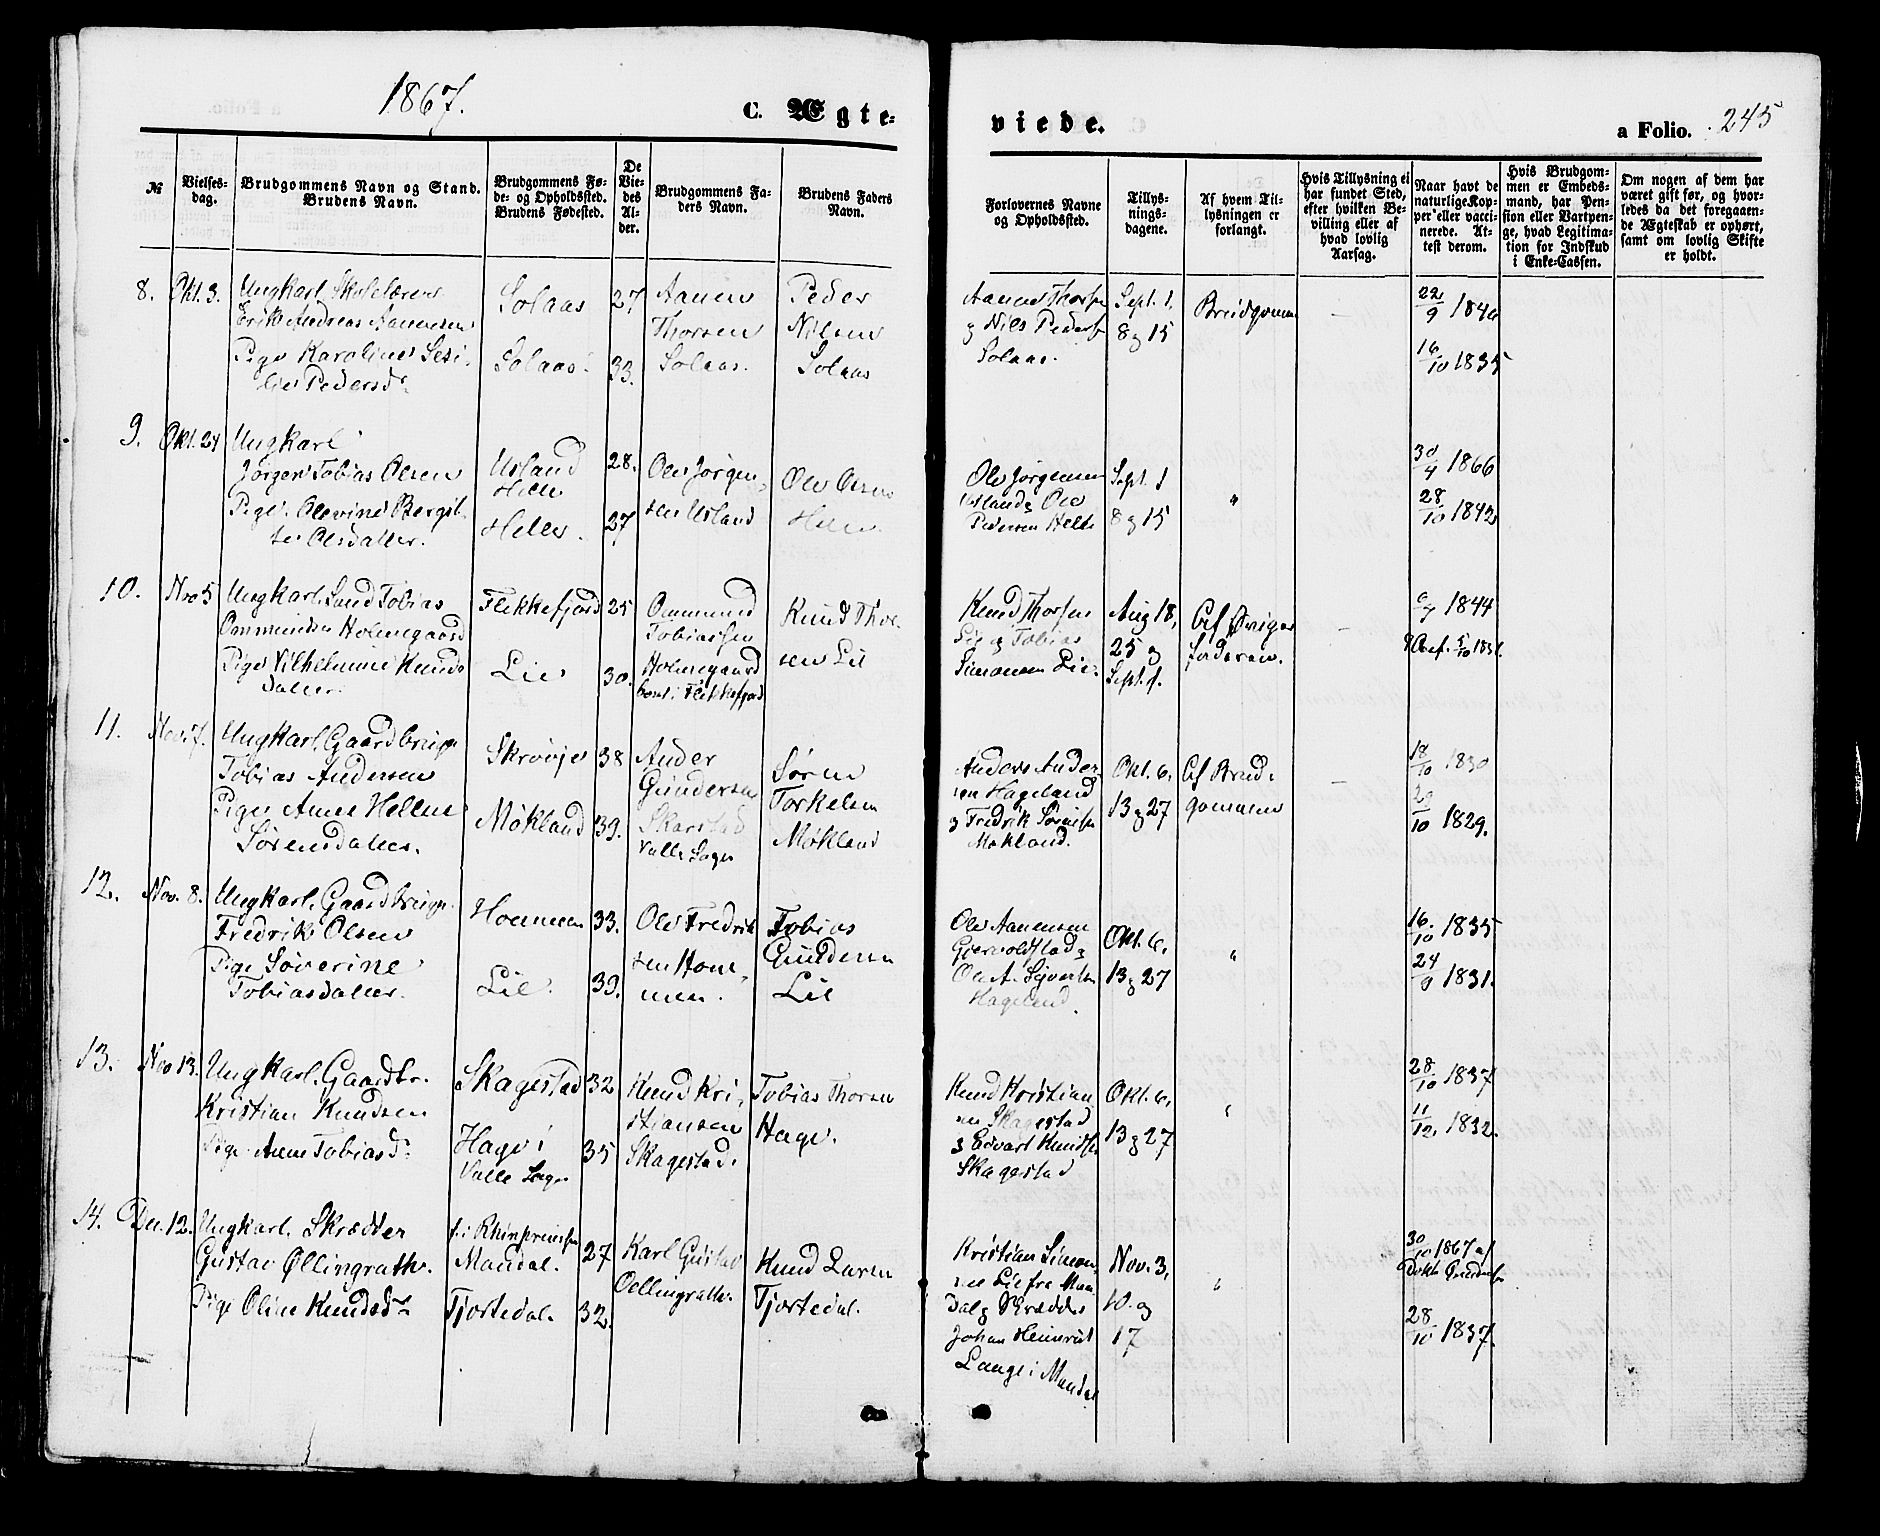 1867.
C. Ægte-
viede.
a Folio. 245
№
Vielses-
dag.
Brudgommens Navn og Stand.
Brudens Navn.
Brudgommens Fø-
de- og Opholdssted.
Brudens Fødested.
De
Vie-
des
Al-
der.
Brudgommens Fa-
ders Navn.
Brudens Faders
Navn.
Forlovernes Navne
og Opholdssted.
Tillys-
nings-
dagene.
Af hvem Til-
lysningen er
forlangt.
Hvis Tillysning ei
har fundet Sted,
efter hvilken Be-
villing eller af
hvad lovlig
Aarsag.
Naar havt de
naturlige Kop-
per eller vacci-
nerede. At-
test derom.
Hvis Brudgom-
men er Embeds-
mand, har Pen-
sion eller Vartpen-
ge, hvad Legitima-
tion for Indskud
i Enke-Cassen.
Om nogen af dem har
været gift før, og hvor-
ledes da det foregaaen-
de Ægteskab er ophørt,
samt om lovlig Skifte
er holdt.
8. Okt. 3.
Ungkarl Skolelærer
Erik Andreas Aanensen
Pige Karoline Sesi-
lie Pedersdr
Solaas
Solaas
27
33.
Aanen
Thorsen
Solaas.
Peder
Nilsen
Solaas
Aanen Thorsen
g Nils Peders
Solaas.
Sept. 1.
8 g 15
Brudgomm
22/9 1840
16/10 1835
9. Okt. 24
Ungkarl
Jørgen Tobias Olsen
Pige Olevine Bergit-
te Olsdatter.
Usland
Helle
Helle.
28.
27
Ole Jørgen-
sen Usland
Ole Olsen
Helle.
Ole Jørgensen
Usland g Ole
Pedersen Helle
Sept. 1
8 g 15
"
30/4 1866
28/10 1842
10. Nov 5
Ungkarl. Tobias
Ommundsen Holmegaard
Pige Vilhelmine Knuds
datter.
Flekkefjord
Lie
25
30.
Ommund
Tobiassen
Holmegaard
Knud Thor-
sen Lie
Knud Thorsen
Lie g Tobias
Simonsen Lie.
Aug 18,
25 g
Sept. 1.
1844
11. Nov. 7.
Ungkarl. Gaardbruger
Tobias Andersen
Pige Anne Hellene
Sørensdatter.
Skrøvje
Møkland
38
39.
Ander
Gundersen
Skarstad
Valle Sogn
Søren
Torkelsen
Møkland
Anders Ander-
sen Hageland
g Fredrik Sørensen
Møkland.
Okt. 6,
13 g 27
Af Brud-
gommen
18/10 1830
29/10 1829.
12. Nov. 8.
Ungkarl. Gaardbruger
Fredrik Olsen
Pige Søverine
Tobiasdatter.
Hommen
Lie.
33.
39.
Ole Fredrik
sen Hom-
men.
Tobias
Gundersen
Lie
Ole Aanensen
Gjervoldstad g
Ole A. Syvertsen
Hageland.
Okt. 6,
13 g 27
"
16/10 1835
24/9 1831.
13. Nov 13.
Ungkarl. Gaardbr.
Kristian Knudsen
Pige Anne Tobiasd.
Skagestad
Hage i
Valle Sogn
32
35
Knud Kri-
stiansen
Skagestad.
Tobias Thorsen
Hage.
Knud Kristian
sen Skagestad
g Edvart Knudsen
Skagestad
Okt. 6,
13 g 27
"
28/10 1837
11/12 1832.
14. Dec. 12.
Ungkarl. Skrædder
Gustav Øllingrath.
Pige Oline Knudsdr
f. i Rhinpreussen
Mandal.
Tjortedal.
27
32.
Karl Gustav
Oellingrath.
Knud Larsen
Tjortedal.
Kristian Simon-
sen Lie fra Man
dal g Skrædder
Johan Heinrich
Lange i Mandal
Nov. 3,
10. og
17
"
30/10 1867 af
28/10 1837.